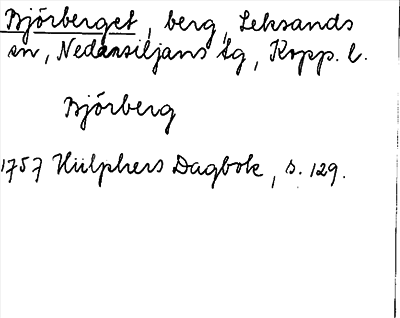 Björberget, berg, Leksands
sn, Nedansiljans tg, Kopp. l.
Björberg
1757 Hülphers Dagbok, s. 129.